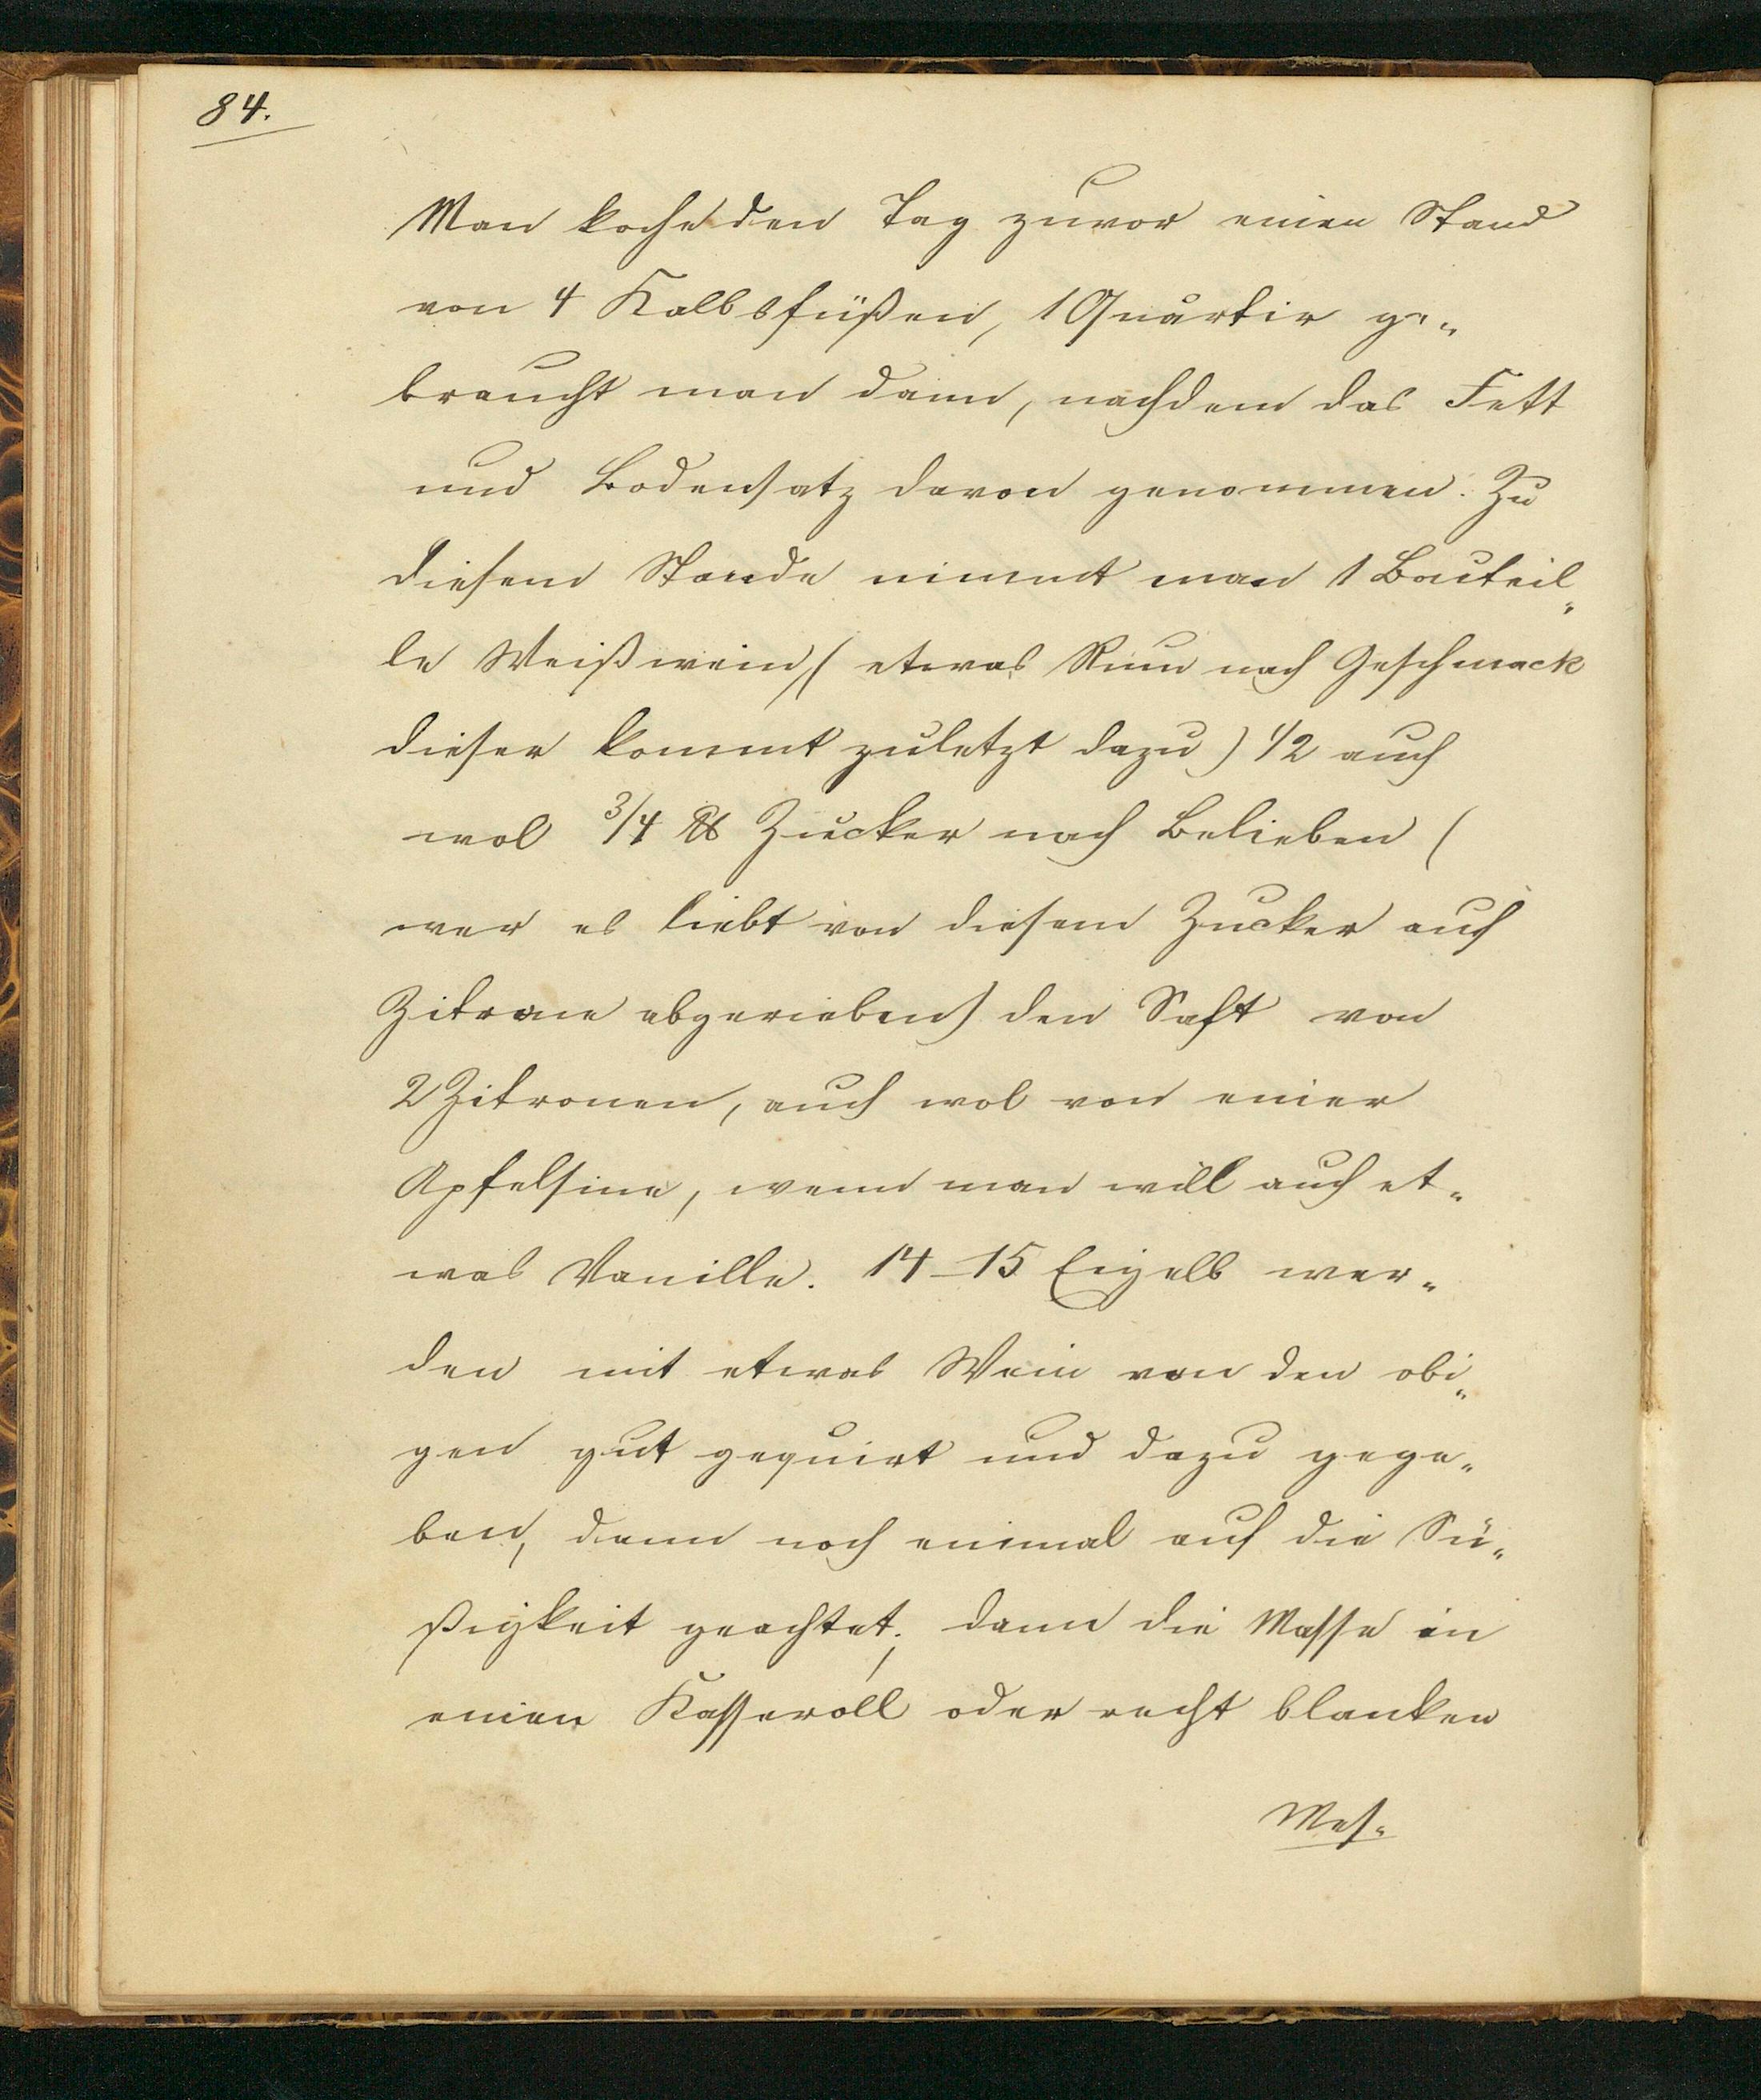 84.
Man koche den Tag zuvor einen Stand
von 4 Kalbsfüßen, 1 Quartir ge„
braucht man dann, nachdem das Fett
und Bodensatz davon genommen. Zu
diesem Stande nimmt man 1 Bouteil„
le Weißwein, (etwas Rum nach Geschmack
dieser kommt zuletzt dazu) 1/2 auch
wol 3/4 ℔ Zucker nach Belieben (
wer es liebt von diesem Zucker auf
Zitrone abgerieben) den Saft von
2 Zitronen, auch wol von einer
Apfelsine, wenn man will auch et„
was Vanille. 14–15 Eigelb wer„
den mit etwas Wein von den obi„
gen gut gequirt und dazu gege„
ben, dann noch einmal auf die Sü„
ßigkeit geachtet; dann die Masse in
einen Kasseroll oder recht blanken
Mes„